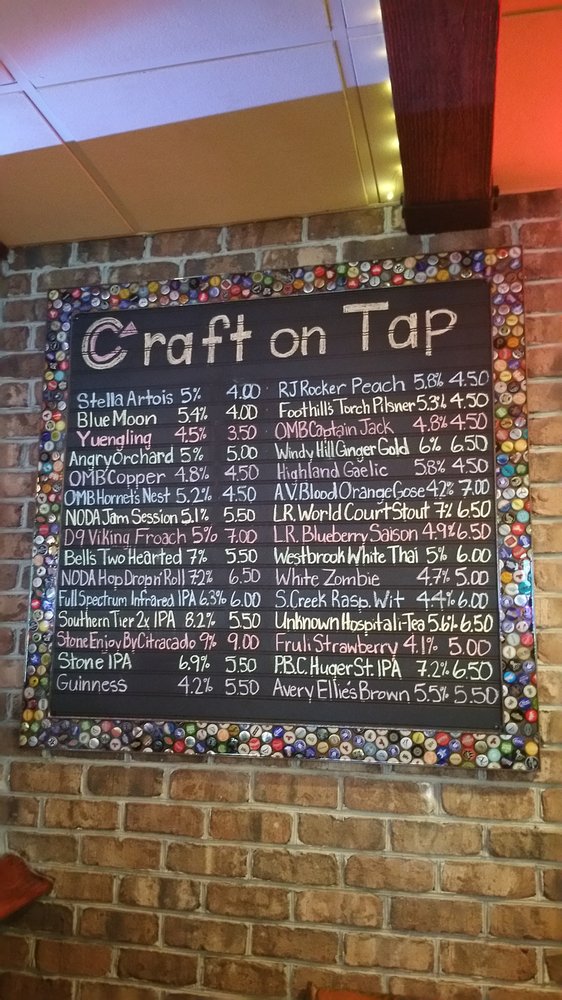 Craft on Tap
Stella Artois 5% 4.00
Blue Moon 5.4% 4.00
Yuengling 4.5% 3.50
Angry Orchard 5% 5.00
OMB Copper 4.8% 4.50
OMB Hornet's Nest 5.2% 4.50
NODA Jam Session 5.1% 5.50
D9 Viking Froach 5% 7.00
Bells Two Hearted 7% 5.50
NODA Hop Drop n' Roll 7.2% 6.50
Full Spectrum Infrared IPA 6.3% 6.00
Southern Tier 2x IPA 8.2% 5.50
Stone Enjoy By Citracado 9% 9.00
Stone IPA 6.9% 5.50
Guinness 4.2% 5.50
RJ Rocker Peach 5.8% 4.50
Foothills Torch Pilsner 5.3% 4.50
OMB Captain Jack 4.8% 4.50
Windy Hill Ginger Gold 6% 6.50
Highland Gaelic 5.8% 4.50
A.V. Blood Orange Gose 4.2% 7.00
L.R. World Court Stout 7% 6.50
L.R. Blueberry Saison 4.9% 6.50
Westbrook White Thai 5% 6.00
White Zombie 4.7% 5.00
S. Creek Rasp. Wit 4.4% 6.00
Unknown Hospitali-Tea 5.6% 6.50
Fruli Strawberry 4.1% 5.00
P.B.C. Huger St. IPA 7.2% 6.50
Avery Ellie's Brown 5.5% 5.50